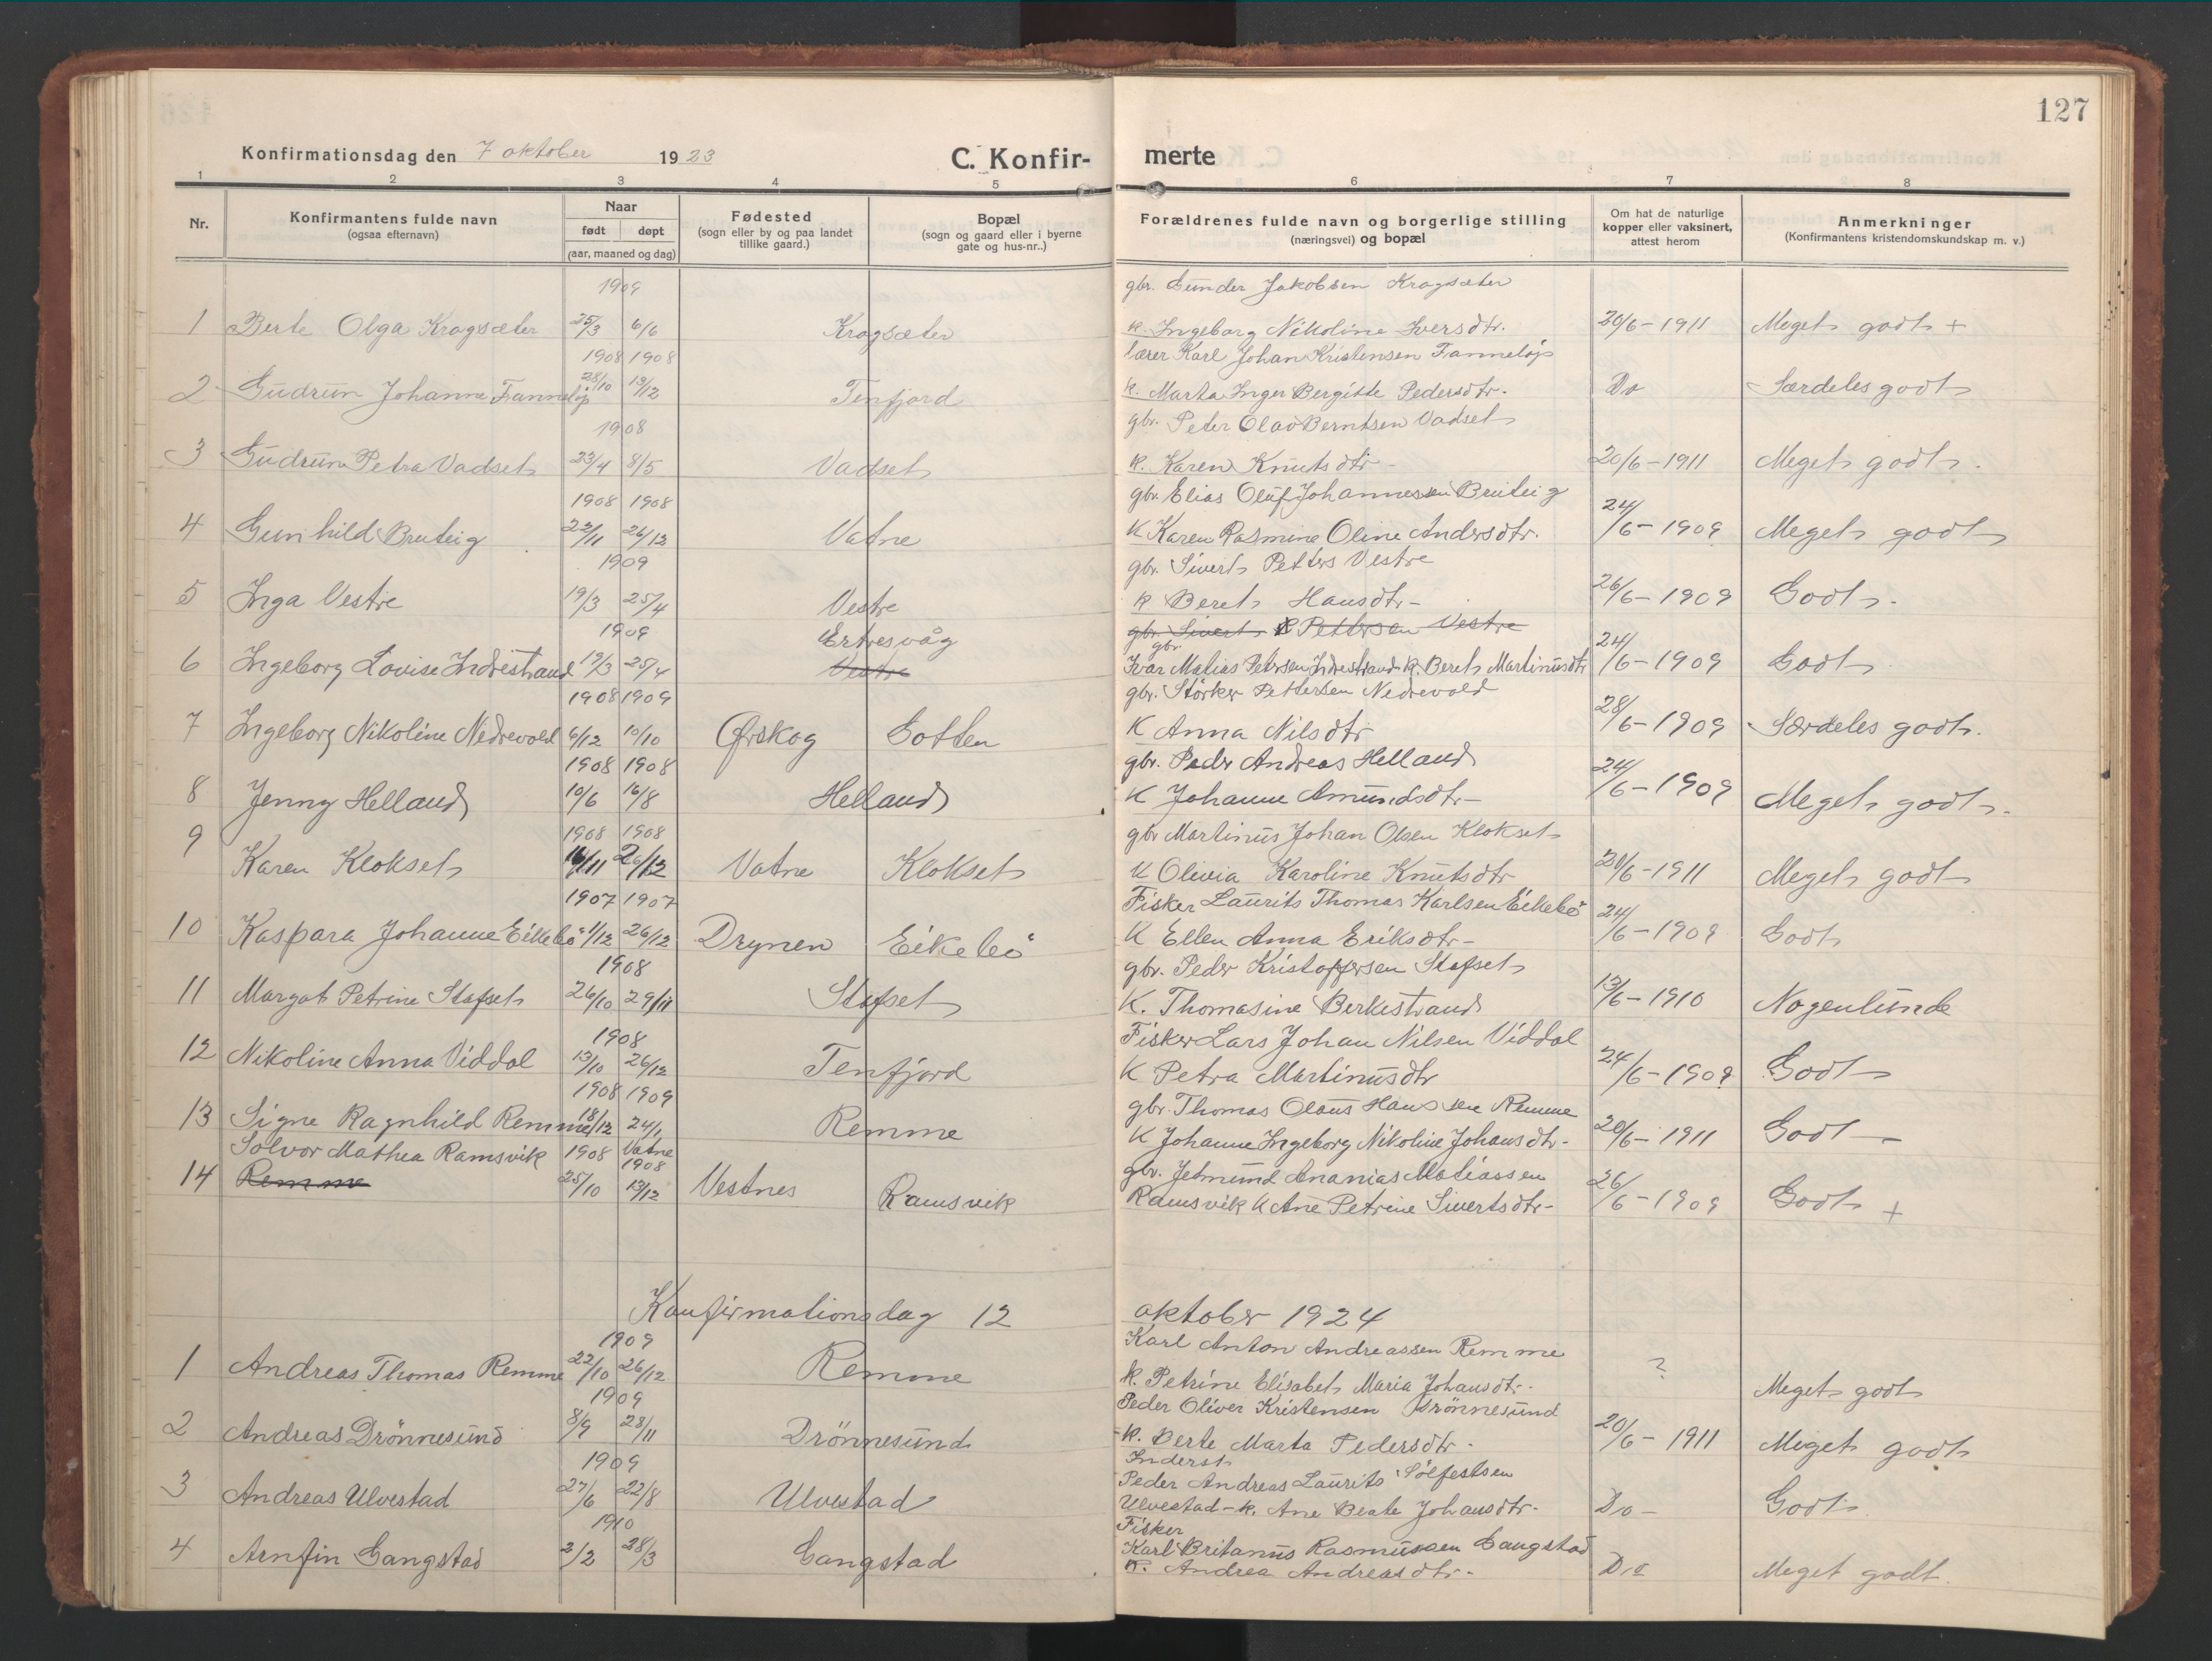 127
Konfirmationsdag den 7 oktober 1923 C. Konfir- merte
1 2 3 4 5 6 7 8
Nr.
Konfirmantens fulde navn
(ogsaa efternavn)
Naar
født døpt
(aar, maaned og dag)
Fødested
(sogn eller by og paa landet
tillike gaard.)
Bopæl
(sogn og gaard eller i byerne
gate og hus-nr..)
Forældrenes fulde navn og borgerlige stilling
(næringsvei) og bopæl
Om hat de naturlige
kopper eller vaksinert,
attest herom
Anmerkninger
(Konfirmantens kristendomskundskap m. v.)
1909 gbr. Gunder Jakobsen Kragsæter
1 Berte Olga Kragsæter 25/3 6/6 Kragsæter k. Ingeborg Nikoline Iversdtr. 20/6-1911 Meget godt +
1908 1908 lærer Karl Johan Kristensen Fanneløp
2 Gudrun Johanne Fanneløp 28/10 13/12 Tenfjord k. Marta Inger Bergitte Pedersdtr. Do Særdeles godt
1908 gbr. Peter Olav Berntsen Vadset
3 Gudrun Petra Vadset 23/4 8/5 Vadset k. Karen Knutsdtr- 20/6-1911 Meget godt.
1908 1908 gbr Elias Oluf Johannessen Bruteig
4 Gunhild Bruteig 22/11 26/12 Vatne K Karen Rasmine Oline Andersdtr. 24/6-1909 Meget godt
1909 gbr. Sivert Petters Vestre
5 Inga Vestre 19/3 25/4 Vestre k Beret Hansdtr- 26/6-1909 Godt.
1909 Ertresvåg gbr. Sivert Pettersen Vestre
6 Ingeborg Lovise Indrestrand 19/3 25/4 Vestre gbr. Ivar Matias Petersen Indrestrand k. Beret Martinusdtr 24/6-1909 Godt
1908 1909 gbr. Störker Pettersen Nedrevold
7 Ingeborg Nikoline Nedrevold 6/12 10/10 Ørskog Gotten K Anna Nilsdtr 28/6-1909 Særdeles godt.
1908 1908 gbr. Peder Andreas Helland
8 Jenny Helland 10/6 16/8 Helland K Johanne Amundsdtr- 24/6-1909 Meget godt.
1908 1908 gbr Martinus Johan Olsen Klokset
9 Karen Klokset 16/11 26/12 Vatne Klokset K Olivia Karoline Knutsdtr 20/6-1911 Meget godt
1907 1907 Fisker Laurits Thomas Karlsen Eikebö
10 Kaspara Johanne Eikebö 1/12 26/12 Drynen Eikebö K Ellen Anna Eriksdtr- 24/6-1909 Godt
1908 gbr. Peder Kristoffersen Stafset
11 Margot Petrine Stafset 26/10 29/11 Stafset K. Thomasine Berkestrand 13/6-1910 Nogenlunde
1908 Fisker Lars Johan Nilsen Viddal
12 Nikoline Anna Viddal 13/10 26/12 Tenfjord K Petra Martinusdtr 24/6-1909 Godt
1908 1909 gbr. Thomas Olaus Hansen Remme
13 Signe Ragnhild Remme 18/12 24/1 Remme K Johanne Ingeborg Nikoline Johansdtr- 20/6-1911 Godt
Solvor Mathea Ramsvik 1908 Vatne 1908 gbr. Jetmund Ananias Matiassen
14 Remme 25/10 13/12 Vestnes Ramsvik Ramsvik K Ane Petrine Sivertsdtr- 26/6-1909 Godt +
Konfirmationsdag 12 oktober 1924
1909 Karl Anton Andreassen Remme
1 Andreas Thomas Remme 22/10 26/12 Remme k. Petrine Elisabet Maria Johansdtr. ? Meget godt
1909 Peder Oliver Kristensen Drönnesund
2 Andreas Drönnesund 8/9 28/11 Drönnesund k. Berte Marta Pedersdtr. 20/6-1911 Meget godt
1909 Inderst Peder Andreas Laurits Sölfestsen
3 Andreas Ulvestad 27/6 22/8 Ulvestad Ulvestad-k. Ane Beate Johansdtr. Do- Godt
1910 Fisker Karl Britanus Rasmussen Gangstad
4 Arnfin Gangstad 2/2 28/3 Gangstad K. Andrea Andreasdtr- Do Meget godt.